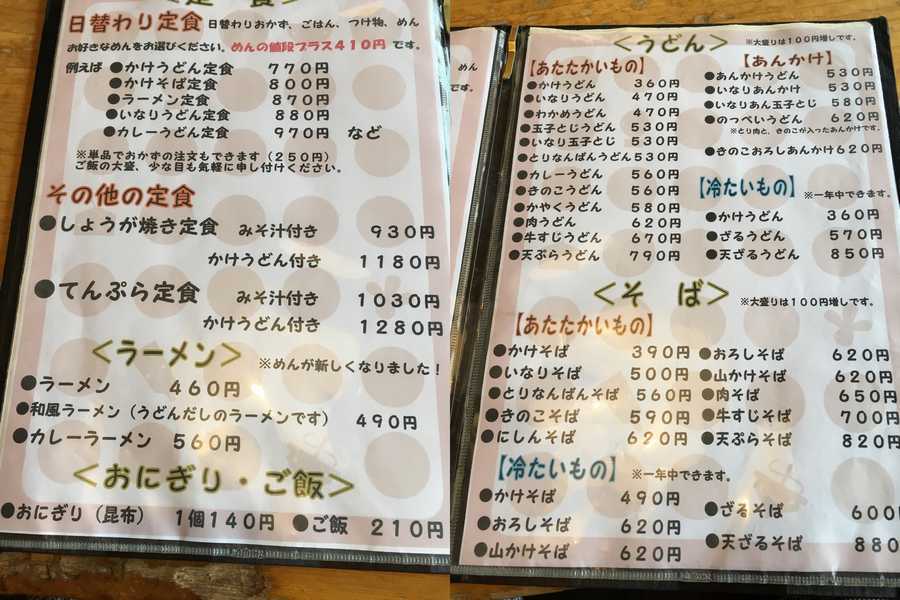 ＜定 食＞
日替わり定食 日替わりおかず、ごはん、つけ物、めん
お好きなめんをお選びください。めんの値段プラス410円 です。
例えば ●かけうどん定食 770円
●かけそば定食 800円
●ラーメン定食 870円
●いなりうどん定食 880円
●カレーうどん定食 970円 など
※単品でおかずの注文もできます（250円）
ご飯の大盛、少な目も気軽に申し付けください。
その他の定食
●しょうが焼き定食 みそ汁付き 930円
かけうどん付き 1180円
●てんぷら定食 みそ汁付き 1030円
かけうどん付き 1280円
＜ラーメン＞ ※めんが新しくなりました！
●ラーメン 460円
●和風ラーメン（うどんだしのラーメンです） 490円
●カレーラーメン 560円
＜おにぎり・ご飯＞
●おにぎり（昆布） 1個140円 ●ご飯 210円
めん
です。
＜うどん＞ ※大盛りは100円増しです。
【あたたかいもの】
●かけうどん 360円
●いなりうどん 470円
●わかめうどん 470円
●玉子とじうどん 530円
●いなり玉子とじ 530円
●とりなんばんうどん 530円
●カレーうどん 560円
●きのこうどん 560円
●かやくうどん 580円
●肉うどん 620円
●牛すじうどん 670円
●天ぷらうどん 790円
【あんかけ】
●あんかけうどん 530円
●いなりあんかけ 530円
●いなりあん玉子とじ 580円
●のっぺいうどん 620円
※とり肉と、きのこが入ったあんかけです。
●きのこおろしあんかけ 620円
【冷たいもの】 ※一年中できます。
●かけうどん 360円
●ざるうどん 570円
●天ざるうどん 850円
＜そ ば＞ ※大盛りは100円増しです。
【あたたかいもの】
●かけそば 390円
●いなりそば 500円
●とりなんばんそば 560円
●きのこそば 590円
●にしんそば 620円
●おろしそば 620円
●山かけそば 620円
●肉そば 650円
●牛すじそば 700円
●天ぷらそば 820円
【冷たいもの】 ※一年中できます。
●かけそば 490円
●おろしそば 620円
●山かけそば 620円
●ざるそば 600円
●天ざるそば 880